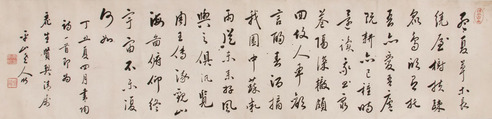 孟夏草木長
繞屋樹扶疏
眾鳥欣有托
吾亦愛吾廬
既耕亦已種時
還讀我書窮
巷隔深轍頗
回故人車歡
言酌春酒摘
我園中蔬微
雨從東來好風
與之俱汎覽
周王傳流觀山
海圖俯仰終
宇宙不樂復
何如
丁丑夏四月書陶
詩一首即為